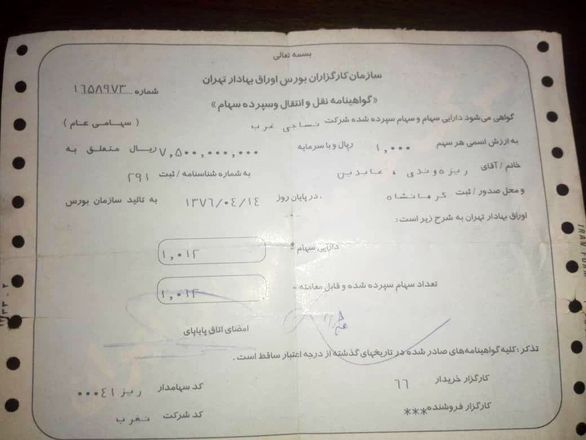 بسمه تعالی
سازمان کارگزاران بورس اوراق بهادار تهران
«گواهینامه نقل و انتقال وسپرده سهام»
شماره ۱۶۵۸۹۷۳
گواهی می‌شود دارایی سهام و سهام سپرده شده شرکت نساجی غرب (سهامی عام)
به ارزش اسمی هر سهم ۱,۰۰۰ ریال و با سرمایه ۷,۵۰۰,۰۰۰,۰۰۰ ریال متعلق به
خانم / آقای ریزه‌وندی، عابدین به شماره شناسنامه / ثبت ۲۹۱
و محل صدور / ثبت کرمانشاه، در پایان روز ۱۳۷۶/۰۴/۱۴ به تائید سازمان بورس
اوراق بهادار تهران به شرح زیر است:
دارایی سهام = ۱,۰۱۲
تعداد سهام سپرده شده و قابل معامله = ۱,۰۱۲
امضای اتاق پایاپای
تذکر: کلیه گواهینامه‌های صادر شده در تاریخهای گذشته از درجه اعتبار ساقط است.
کارگزار خریدار ۶۶ کد سهامدار ریز۰۰۰۴۱
کارگزار فروشنده *** کد شرکت نغرب